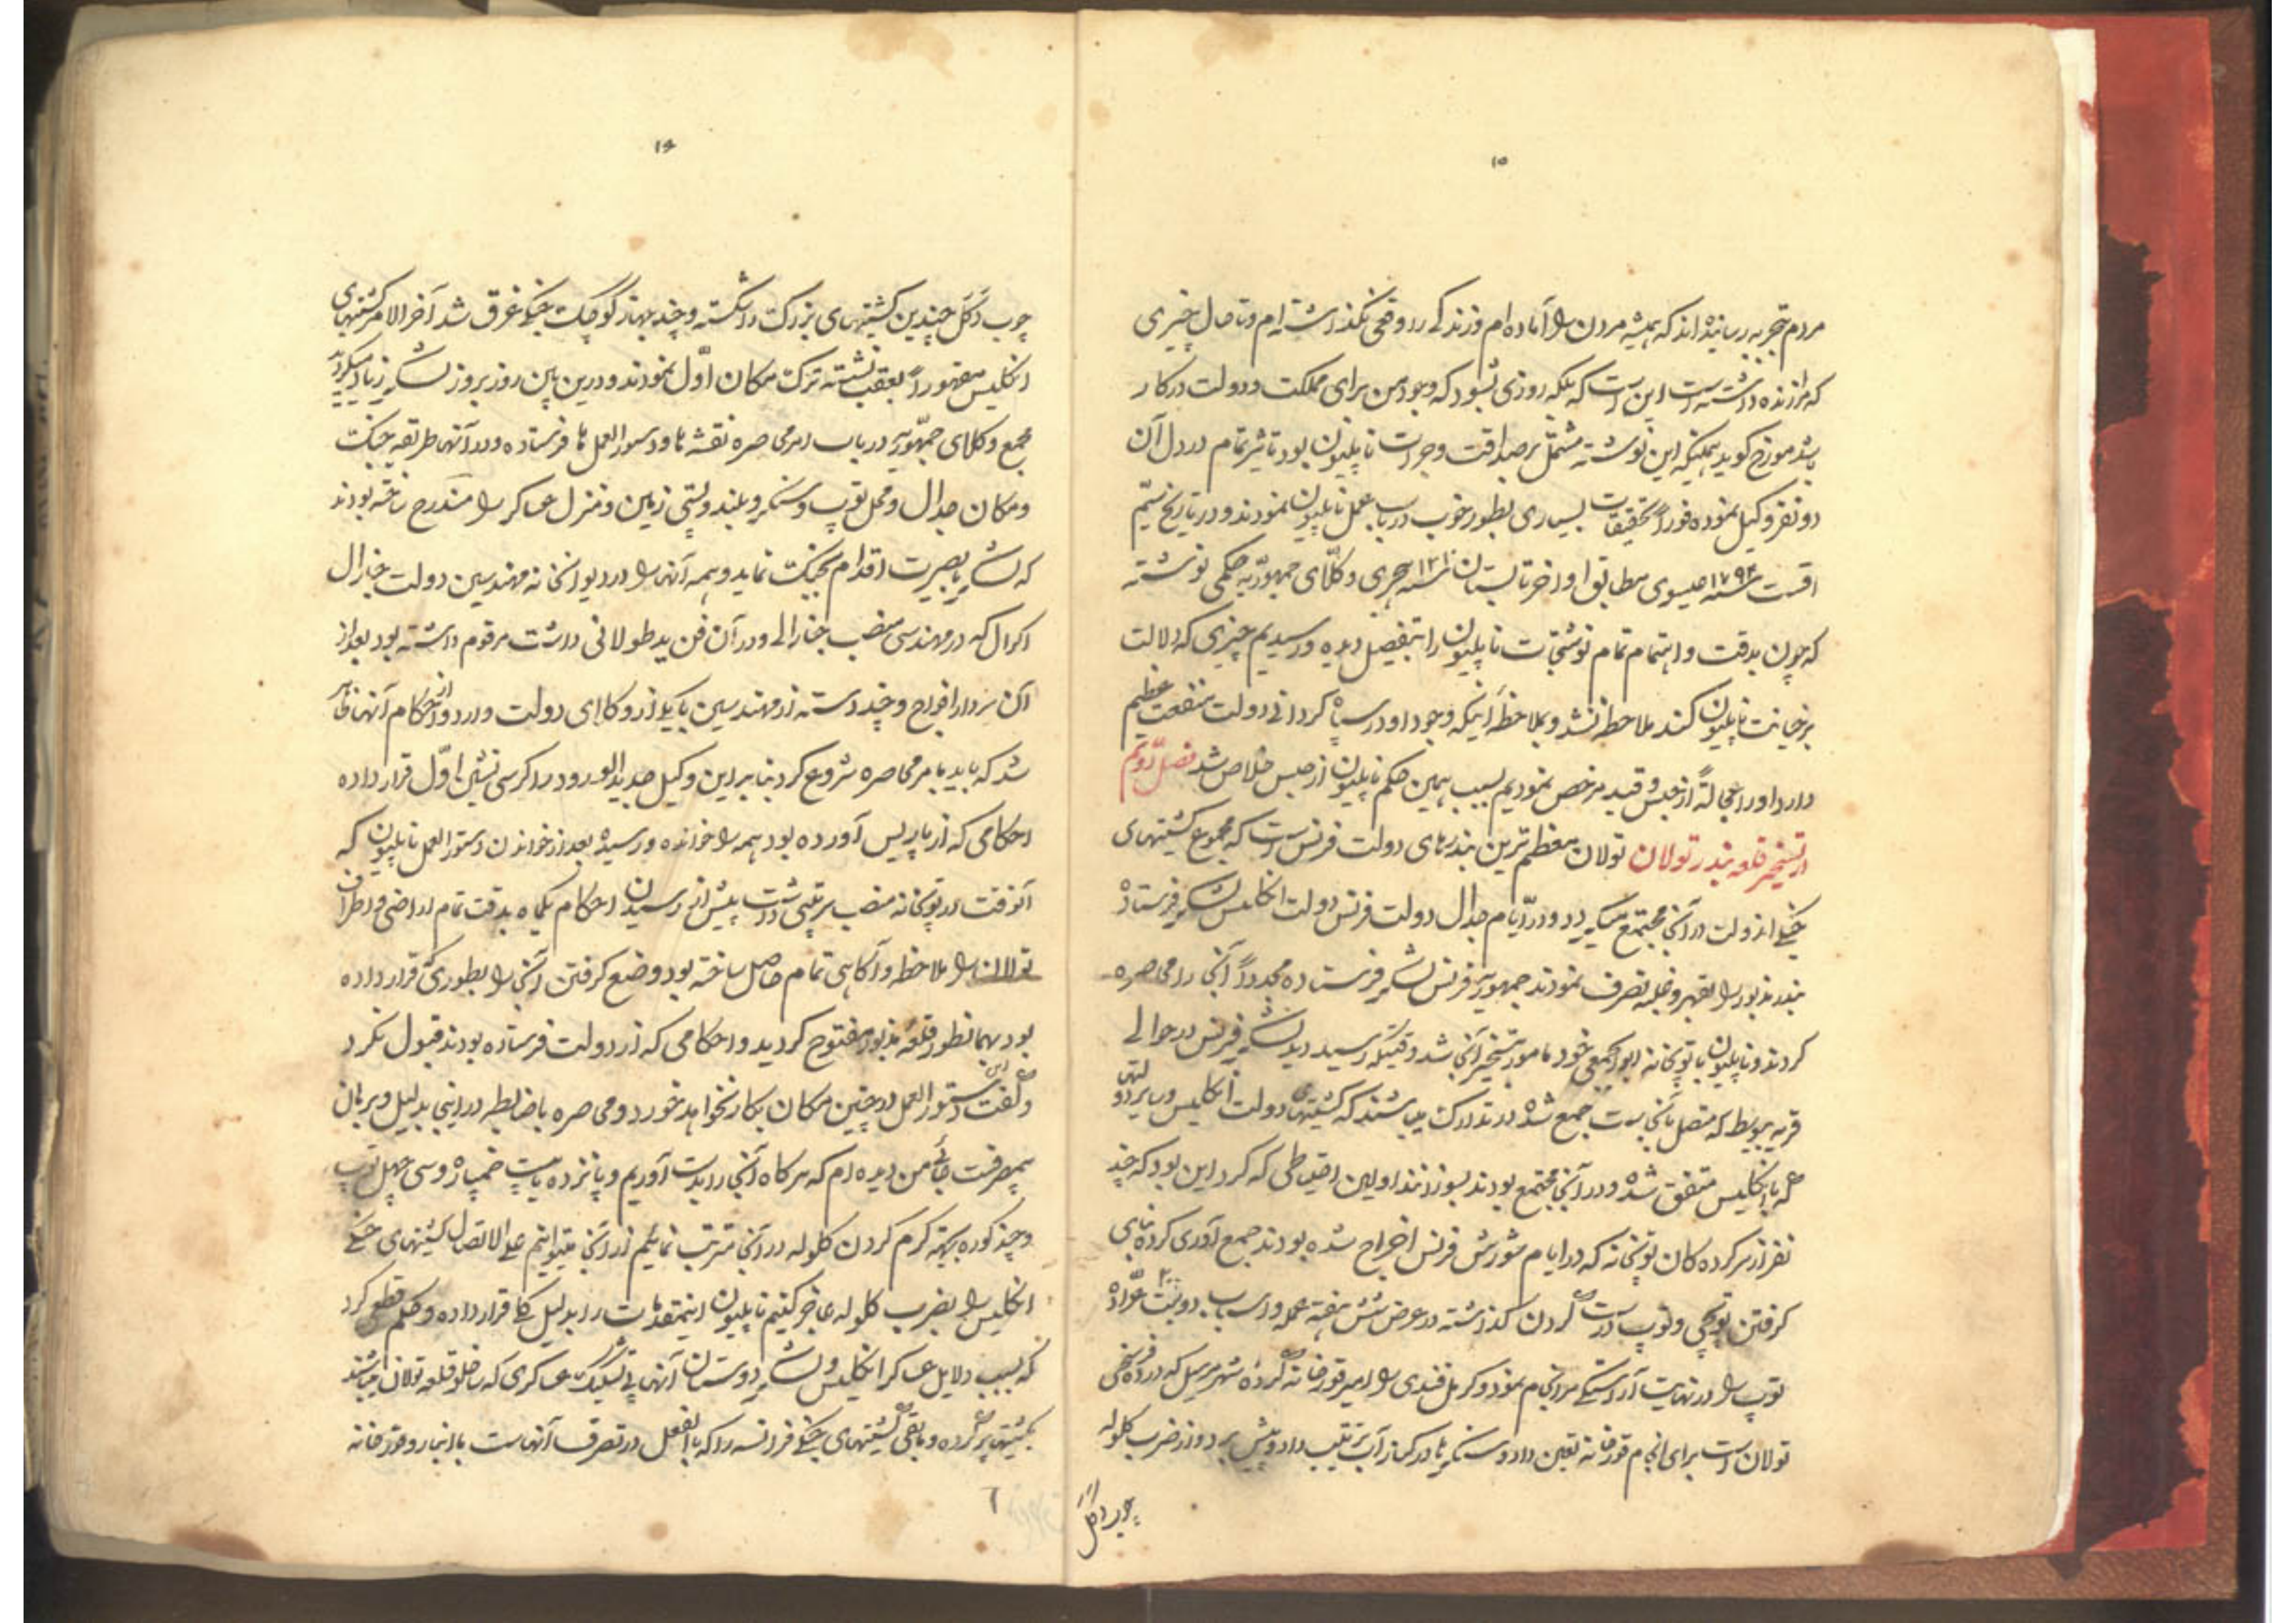 ۱۵
مردم تجربه رسانیده‌اند که همیشه مردن را آماده‌ام و زندگی را وقعی نگذاشته‌ام و تا حال چیزی
که مرا زنده داشته است این است که بلکه روزی بشود که وجود من برای مملکت و دولت در کار
باشد مورخ گوید همینکه این نوشته مشتمل بر صداقت و جرات ناپلیون بود تاثیر تمام در دل آن
دو نفر وکیل نموده فوراً تحقیقات بسیاری بطور خوب در باب عمل ناپلیون نمودند و در تاریخ بیستم
اقست سنه ۱۷۹۴ عیسوی مطابق اواخر تابستان سنه ۱۲۱۰ هجری وکلای جمهوریه حکمی نوشته
که چون بدقت و اهتمام تمام نوشتجات ناپلیون را بتفصیل دیده و رسیدیم چیزی که دلالت
بر خیانت ناپلیون کند ملاحظه نشد و بملاحظه اینکه وجود او در سپاه کردانی دولت منفعت عظیم
دارد او را عجالةً از حبس و قید مرخص نمودیم بسبب همین حکم ناپلیون از حبس خلاص شد فصل دویم
در تسخیر قلعه بندر تولان تولان معظم ترین بندرهای دولت فرنس است که مجموع کشتیهای
جنگی اندولت در آنجا مجتمع میگردد و در ایام جدال دولت فرنس دولت انگلیس لشگر فرستاده
بندر مذبور را بقهر و غلبه تصرف نمودند جمهوریه فرنس لشگر فرستاده مجدداً آنجا را محاصره
کردند و ناپلیون با توپخانه ابوابجمعی خود مامور تسخیر آنجا شد وقتیکه رسید دید لشگر فرنس در حوالی
قریه که متصل بآنجا است جمع شده در تدارک میباشند که کشتیهای دولت انگلیس و سایر دولتهای
که با انگلیس متفق شده و در آنجا مجتمع بودند بسوزانند اولین احتیاطی که کرد این بود که چند
نفر از سرکرده کان توپخانه که در ایام شورش فرنس اخراج شده بودند جمع آوری کرده بنای
گرفتن توپچی و توپ درست کردن گذاشته در عرض شش هفته عمله و اسباب دویست عراده
توپ را در نهایت آراستگی سرانجام نمود و کرنل قندی را امیر قورخانه کرده شهر مرسیل که در ده فرسخی
تولان است برای انجام قورخانه تعیین داد و سنگرها در کنار آب ترتیب داد و پیش برد و از ضرب کلوله
چوب دکل
۱۶
چوب دکل چندین کشتیهای بزرگ را شکسته و چند جهاز کوچک جنگی غرق شد آخر الامر کشتیهای
انگلیس مقهوراً بعقب نشسته ترک مکان اول نمودند و درین بین روز بروز لشگر زیاد میکردید
مجمع وکلای جمهوریه در باب امر محاصره نقشه ها و دستور العمل ها فرستاده و در آنها طریقه جنگ
و مکان جدال و محل توپ و سنگر و بلند و پستی زمین و منزل عساکر را مندرج ساخته بودند
که لشگر با بصیرت اقدام بجنگ نماید و همه آنها را در دیوانخانه مهندسین دولت جنارال
که در مهندسی منصب جنارالی و در آن فن ید طولانی داشت مرقوم داشته بود بعد از
آن سردار افواج و چند دسته از مهندسین با یکی از وکلای دولت وارد و از احکام آنها ظاهر
شد که باید بامر محاصره شروع کرد بنا براین وکیل جدید الورود را کرسی نشین اول قرار داده
احکامی که از پاریس آورده بود همه را خوانده و رسیده بعد از خواندن دستور العمل ناپلیون که
آنوقت در توپخانه منصب سرتیپی داشت پیش از رسیدن احکام یکماه بدقت تمام اراضی و اطراف
تولان را ملاحظه و آگاهی تمام حاصل ساخته بود و وضع گرفتن آنجا را بطوری که قرار داده
بود بهمانطور قلعه مذبور مفتوح گردید و احکامی که از دولت فرستاده بودند قبول نکرد
و گفت این دستور العمل در چنین مکان بکار نخواهد خورد و محاصره با ضابطه در اینجا بدلیل و برهان
بیمصرفست جائی من دیده‌ام که هر کاه آنجا را بدست آوریم و پانزده یا بیست خمپاره و سی چهل توپ
و چند کوره بجهته گرم کردن کلوله در آنجا مرتب نمائیم از آنجا میتوانیم علی الاتصال کشتیهای جنگی
انگلیس را بضرب کلوله عاجز کنیم ناپلیون اینمقدمات را بدلیل قرار داده و حکم قطع کرد
که بسبب دلایل عساکر انگلیس و لشگر دوستان آنها بی تشکیک عساکری که ساخلو قلعه تولان میباشند
بکشتیها پر کرده و مابقی کشتیهای جنگی فرانسه را که بالفعل در تصرف آنهاست با انبار و قورخانه